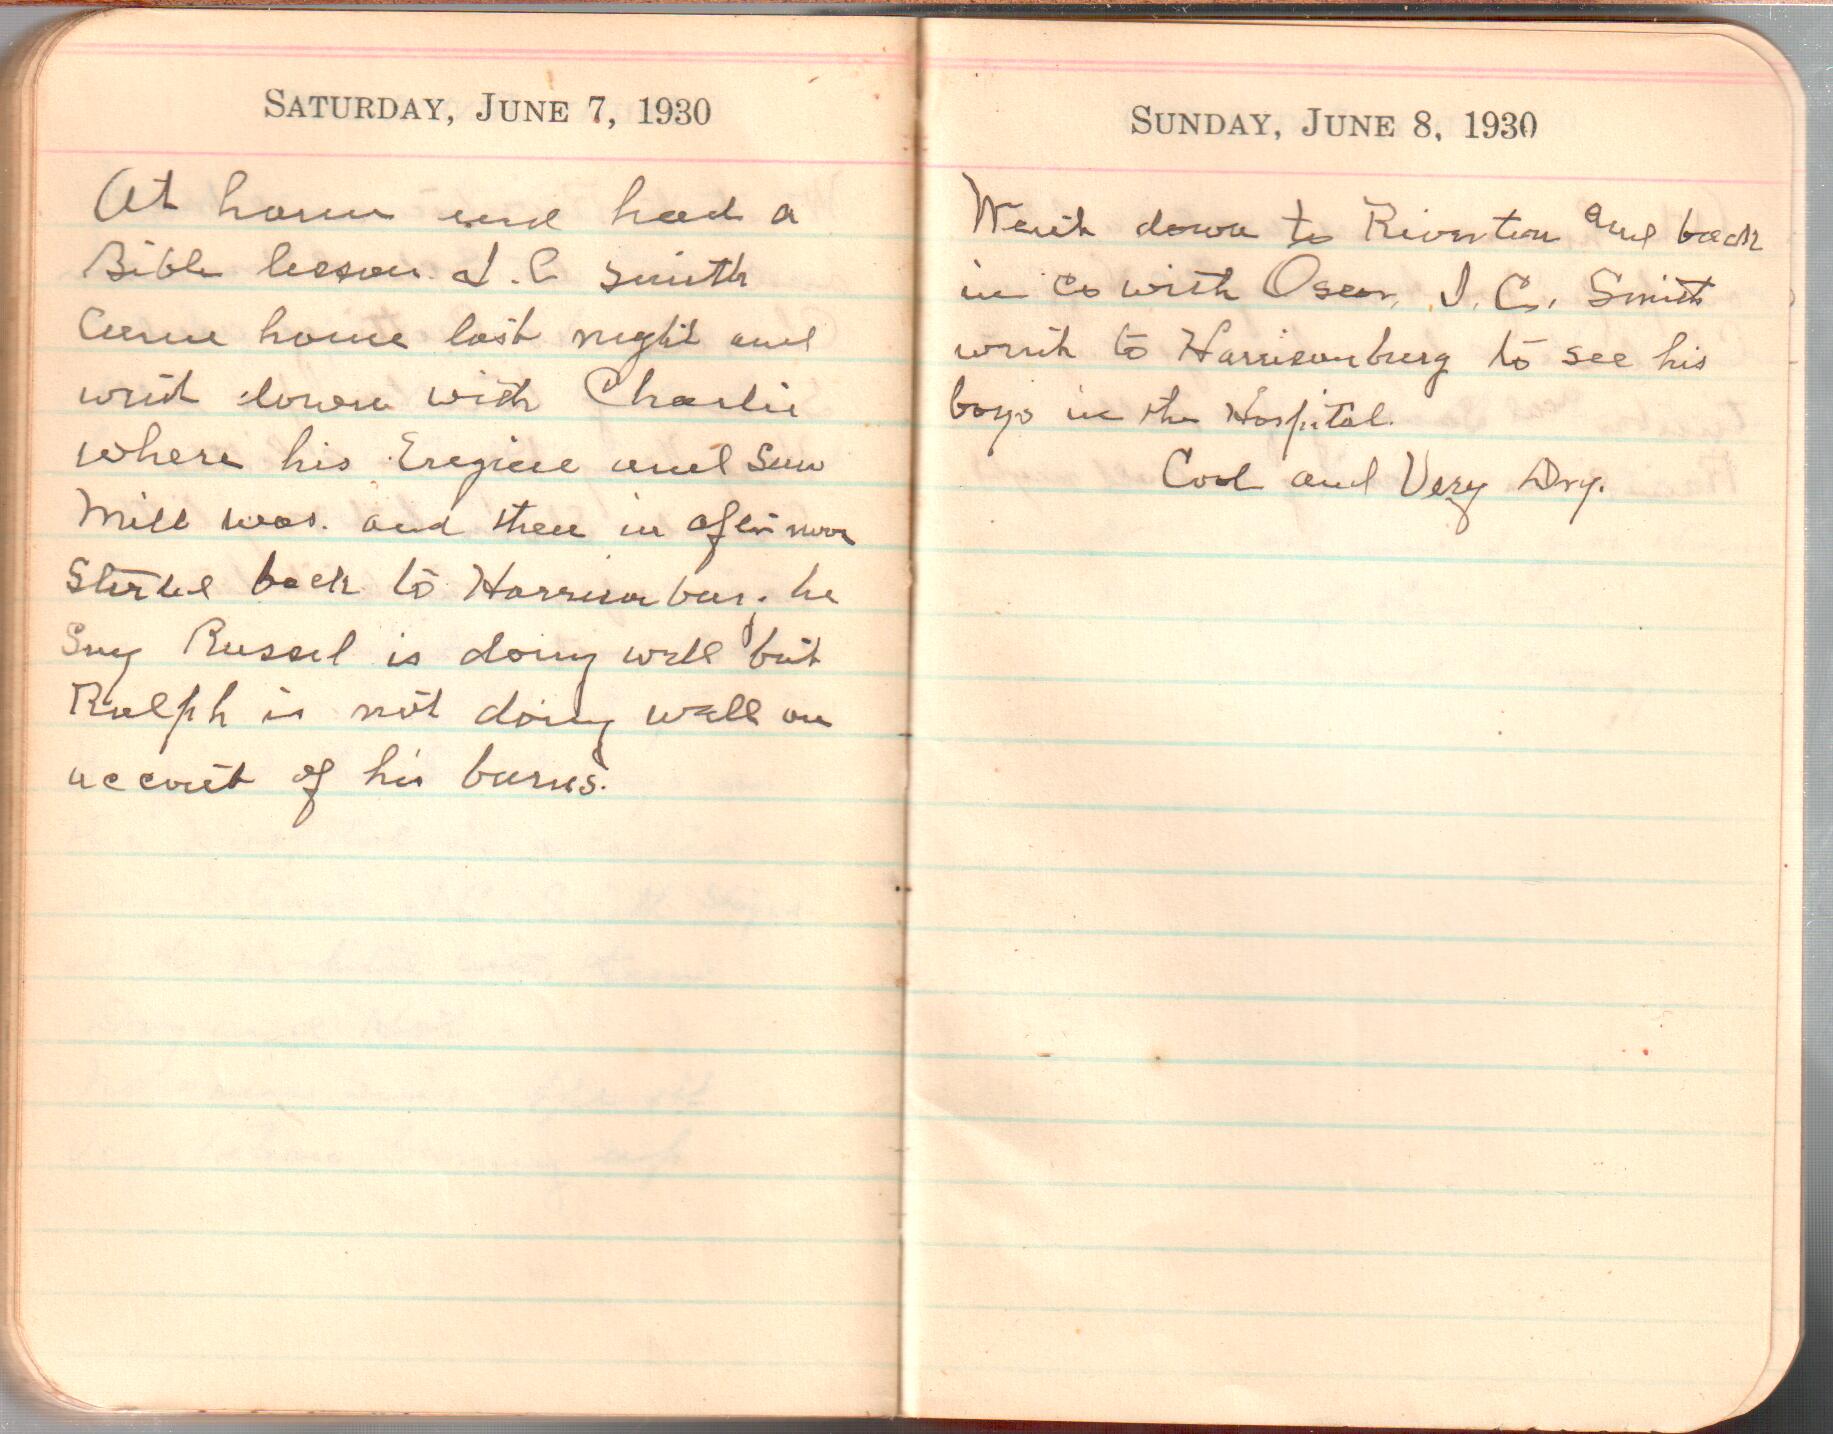 SATURDAY, JUNE 7, 1930
At home and had a
Bible lesson. J. C Smith
Came home last night and
went down with Charlie
where his Engine and Saw
Mill was. and then in afternoon
started back to Harrisonburg. he
Say Russel is doing well but
Ralph is not doing well on
account of his burns.
SUNDAY, JUNE 8, 1930
Went down to Riverton and back
in Co with Oscar, J. C. Smith
went to Harrisonburg to see his
boys in the Hospital.
Cool and Very Dry.